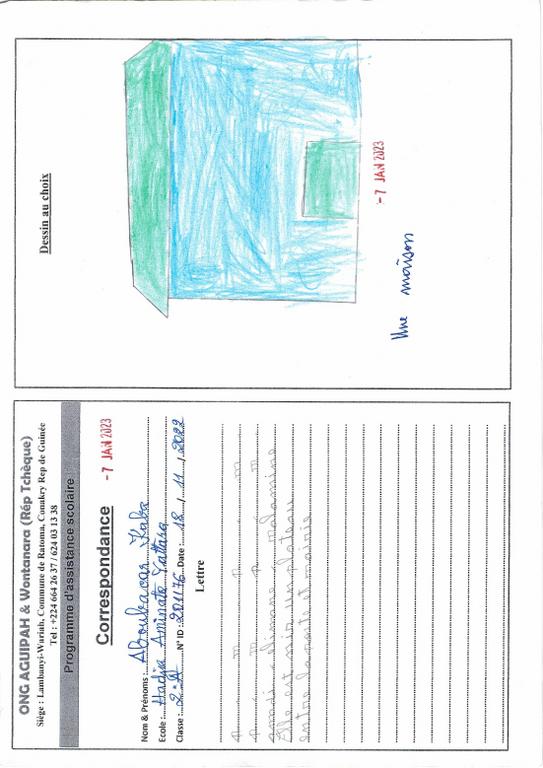 ONG AGUIPAH & Wontanara (Rép Tchèque)
Siège : Lambanyi-Wariah, Commune de Ratoma, Conakry Rep de Guinée
Tel : +224 664 26 37 / 624 03 13 38
Programme d'assistance scolaire
Correspondance
-7 JAN 2023
Nom & Prénoms : Aboubacar Kaba
Ecole : Hadja Aminata Yattara
Classe : 2è A N° ID : 201176 Date : 18 / 11 / 2022
Lettre
Elle est sur un plateau
entre la porte et
Dessin au choix
-7 JAN 2023
Une maison